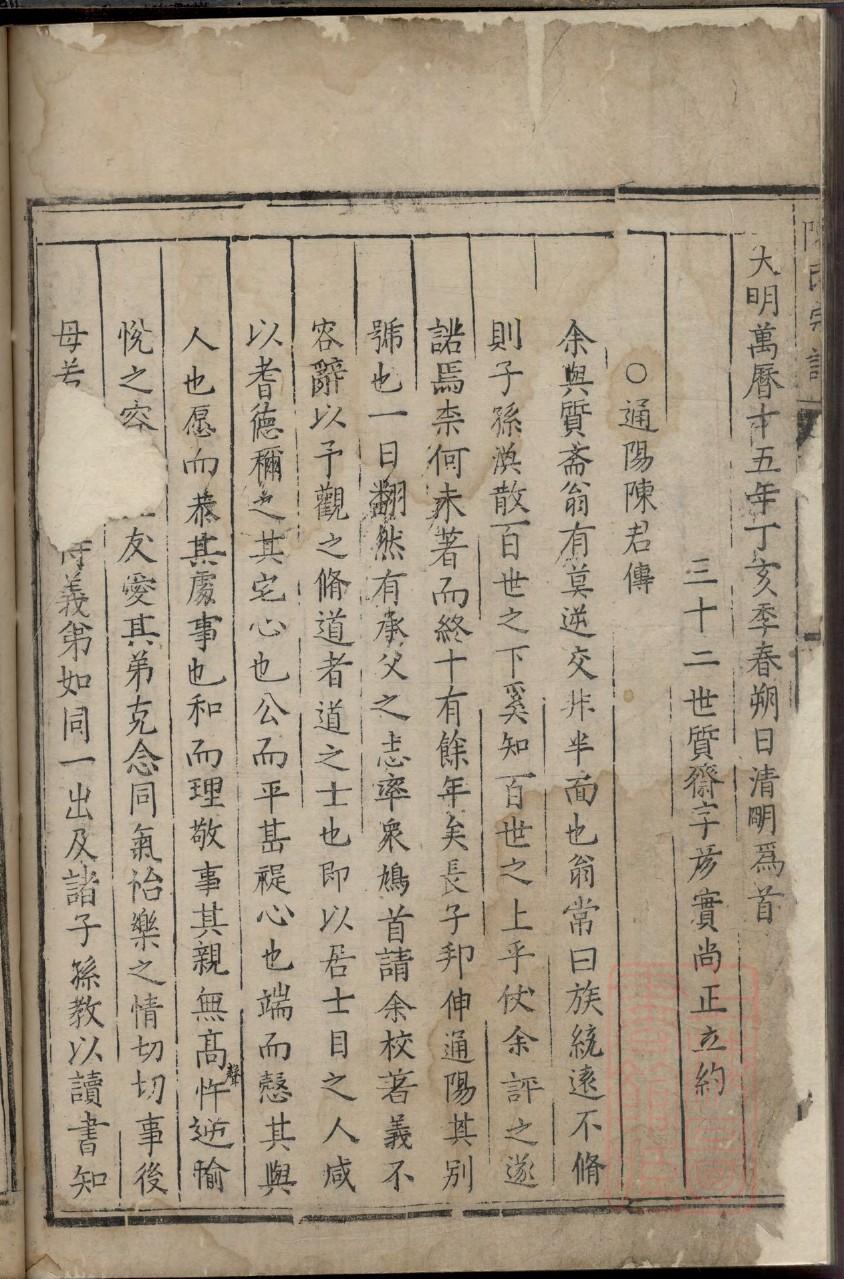 大明萬曆十五年丁亥季春朔日清明爲首
三十二世質齋字彦實尚正立約
○通陽陳君傳
余與質斋翁有莫逆交非半面也翁常曰族統遠不脩
則子孫渙散百世之下奚知百世之上乎伏余評之遂
諾焉柰何未著而終十有餘年矣長子邦伸通陽其别
號也一日翻然有承父之志率衆鳩首請余校著義不
容辭以予觀之脩道者道之士也即以居士目之人咸
以耆德稱之其宅心也公而平甚禔心也端而慤其與
人也愿而恭其處事也和而理敬事其親無高聲忤逆愉
悅之容友愛其弟克念同氣怡樂之情切切事後
母義弟如同一出及諸子孫教以讀書知